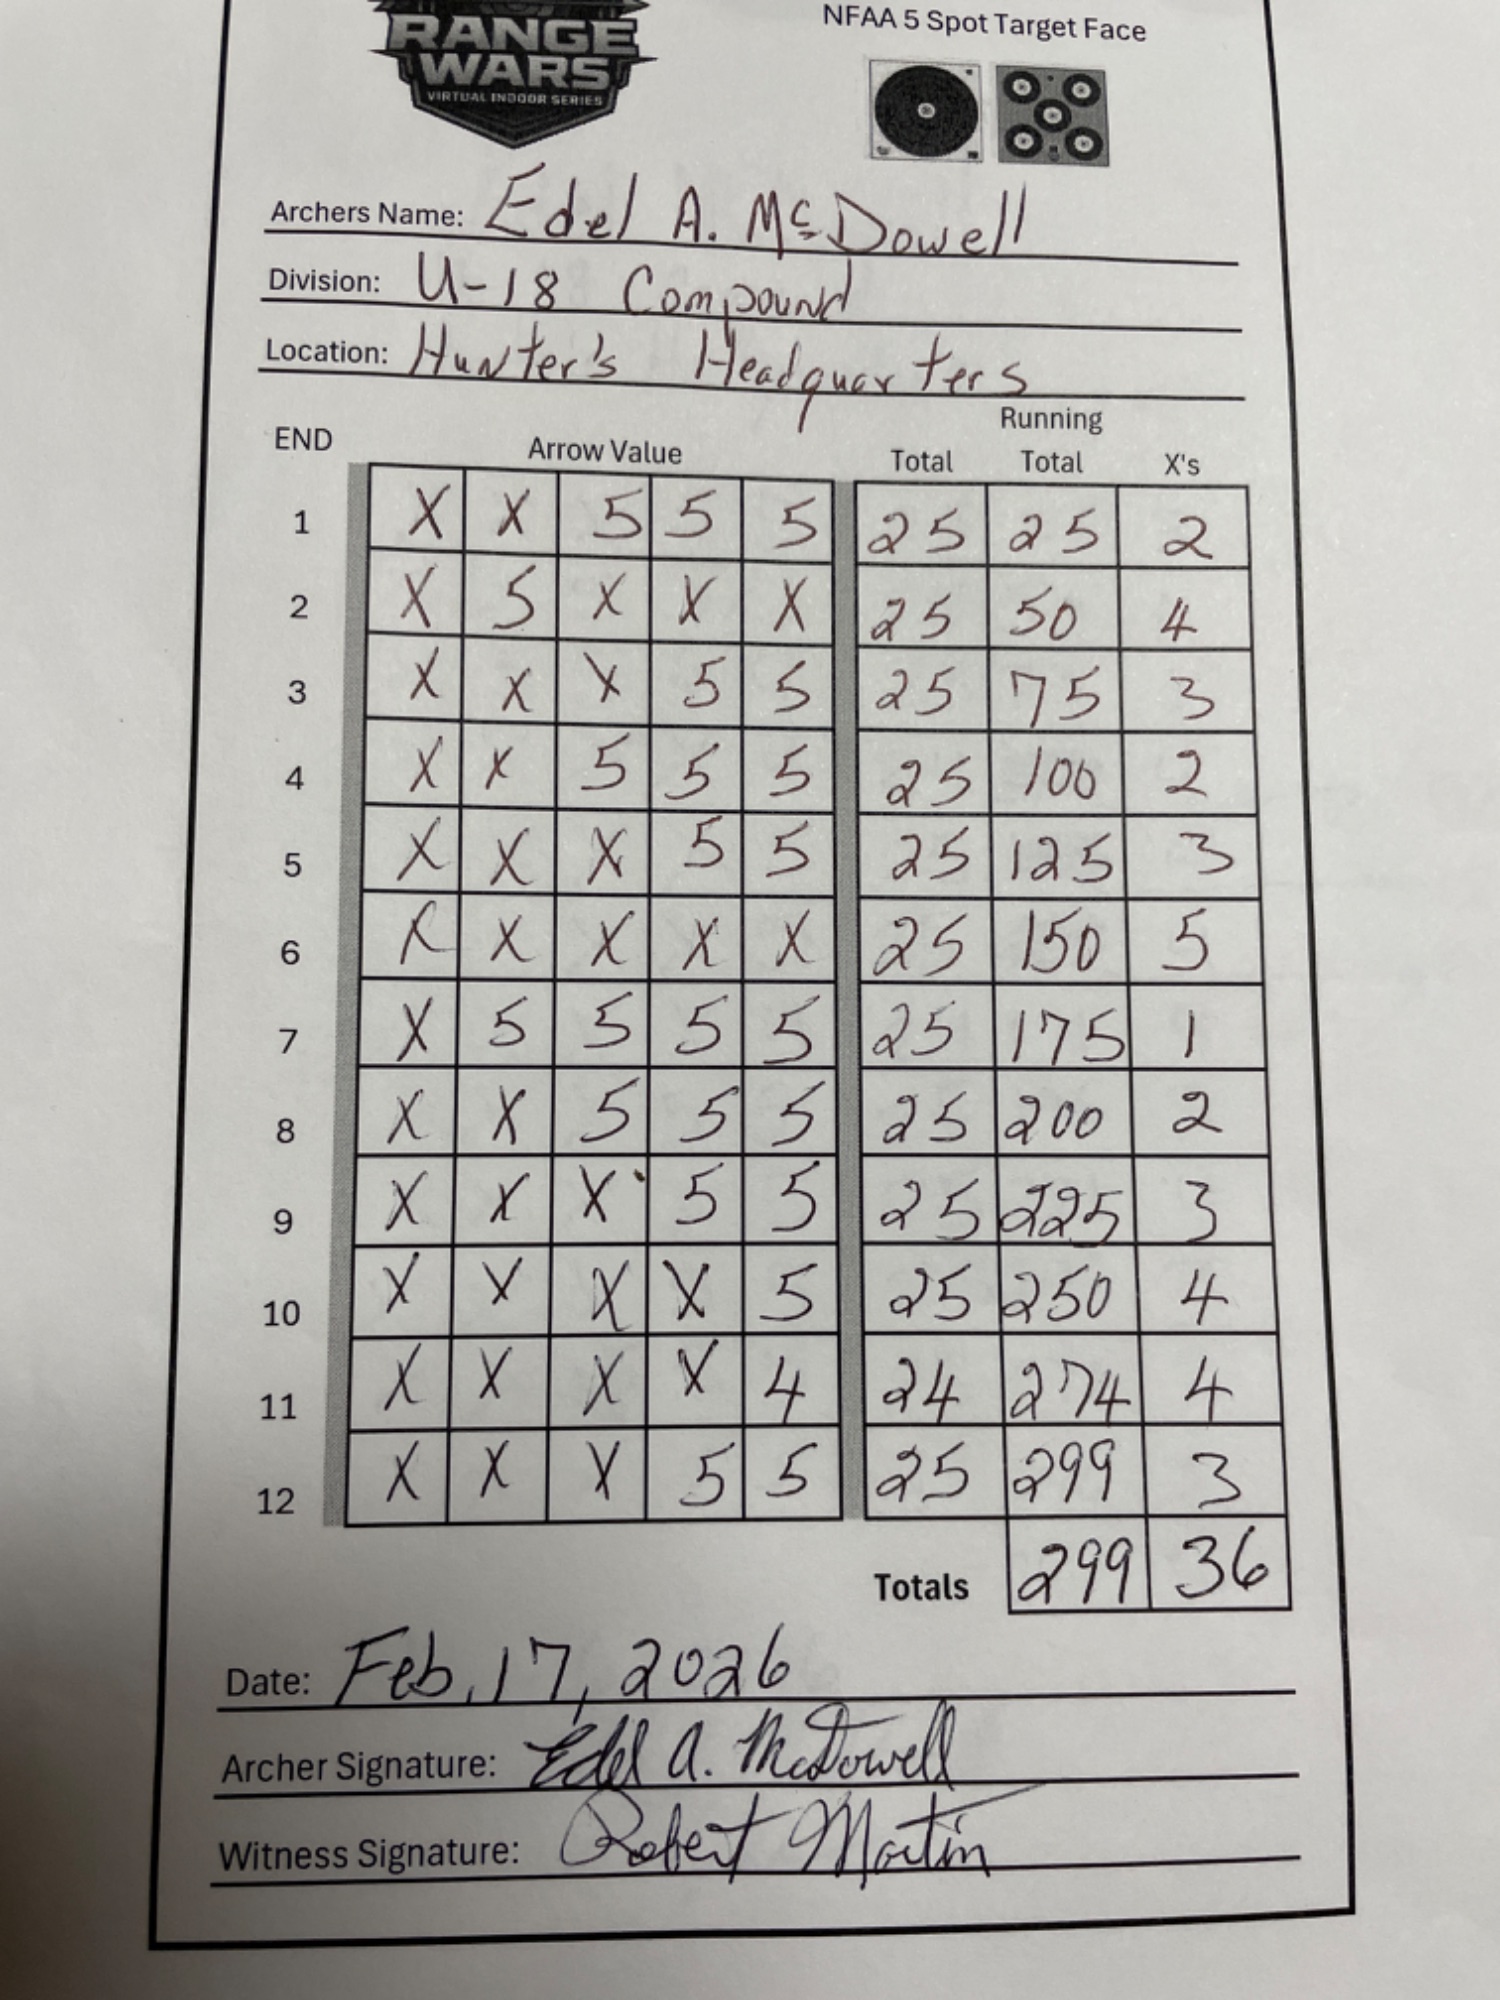 RANGE
WARS
VIRTUAL INDOOR SERIES
NFAA 5 Spot Target Face
Archers Name: Edel A. McDowell
Division: U-18 Compound
Location: Hunter's Headquarters
END Arrow Value Total Running Total X's
1 X X 5 5 5 25 25 2
2 X 5 X X X 25 50 4
3 X X X 5 5 25 75 3
4 X X 5 5 5 25 100 2
5 X X X 5 5 25 125 3
6 X X X X X 25 150 5
7 X 5 5 5 5 25 175 1
8 X X 5 5 5 25 200 2
9 X X X 5 5 25 225 3
10 X X X X 5 25 250 4
11 X X X X 4 24 274 4
12 X X X 5 5 25 299 3
Totals 299 36
Date: Feb. 17, 2026
Archer Signature: Edel A. McDowell
Witness Signature: Robert Martin